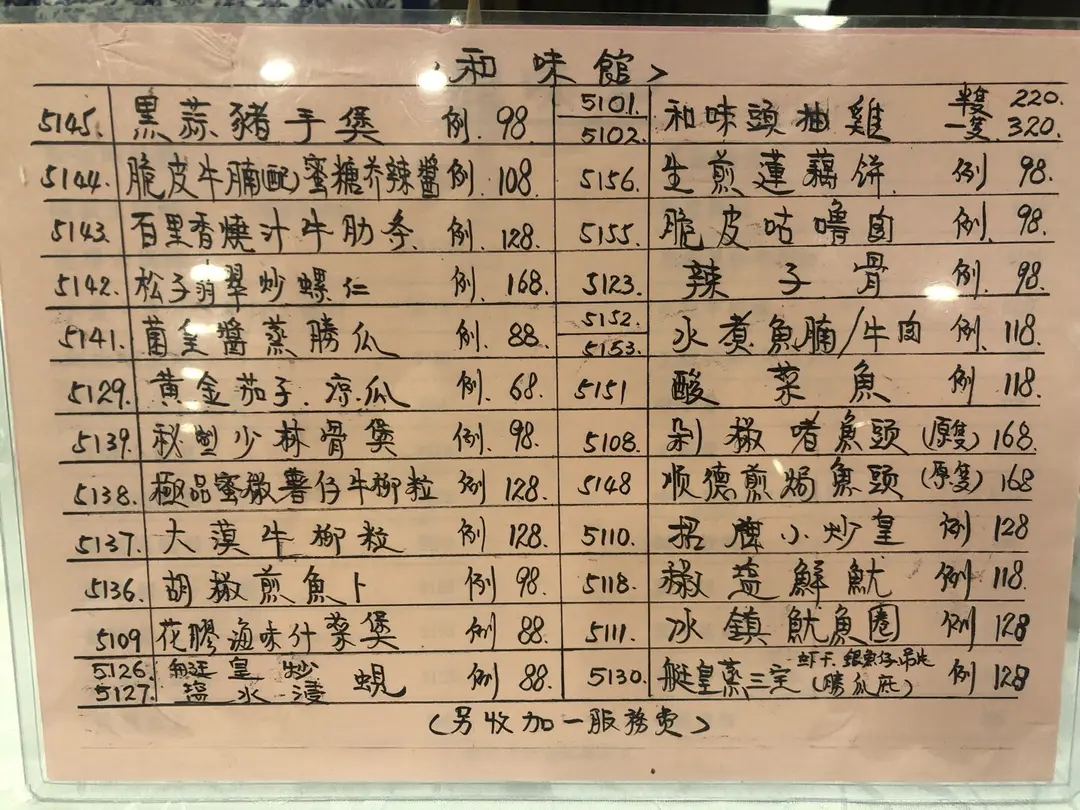 〈和味館〉
5145. 黑蒜豬手煲 例. 98.
5144. 脆皮牛腩(配)蜜糖芥辣醬 例. 108.
5143. 百里香燒汁牛肋条 例. 128.
5142. 松子翡翠炒螺仁 例. 168.
5141. 菌皇醬蒸勝瓜 例. 88.
5129. 黄金茄子.涼瓜 例. 68.
5139. 秘製少林骨煲 例. 98.
5138. 極品蜜椒薯仔牛柳粒 例 128.
5137. 大漠牛柳粒 例 128.
5136. 胡椒煎魚卜 例 98.
5109 花膠海味什菜煲 例 88.
5126. 艇皇炒
5127. 塩水浸
蜆 例 88.
5101.
5102.
和味頭抽雞 半隻 220.
一隻 320.
5156. 生煎蓮藕餅 例 98.
5155. 脆皮咕嚕肉 例. 98.
5123. 辣子骨 例. 98
5152.
5153.
水煮魚腩/牛肉 例. 118
5151 酸菜魚 例 118.
5108. 剁椒啫魚頭(原隻) 168.
5148 順德煎焗魚頭(原隻) 168
5110. 招牌小炒皇 例 128
5118. 椒塩鮮魷 例 118.
5111. 冰鎮魷魚圈 例 128
5130. 艇皇蒸三宝 虾干.銀魚仔.吊片
(勝瓜底) 例 128
(另收加一服務费)